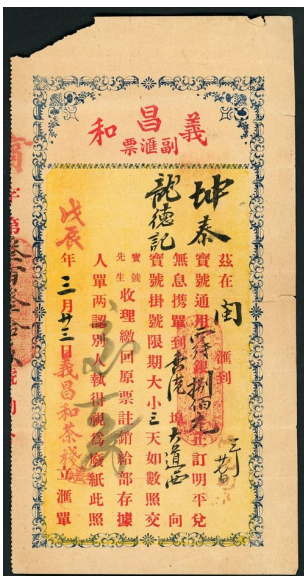 義昌和
副滙票
坤泰
茲在閏滙到
寶號通用銀捌佰元正訂明平兌
無息携單到香港埠大道西向
龍德記
寶號掛號限期大小三天如數照交
寶號先生收理繳回原票註銷給部存據
人單两認別執得視為廢紙此照
戊辰年三月廿三日義昌和茶棧立滙單
字第